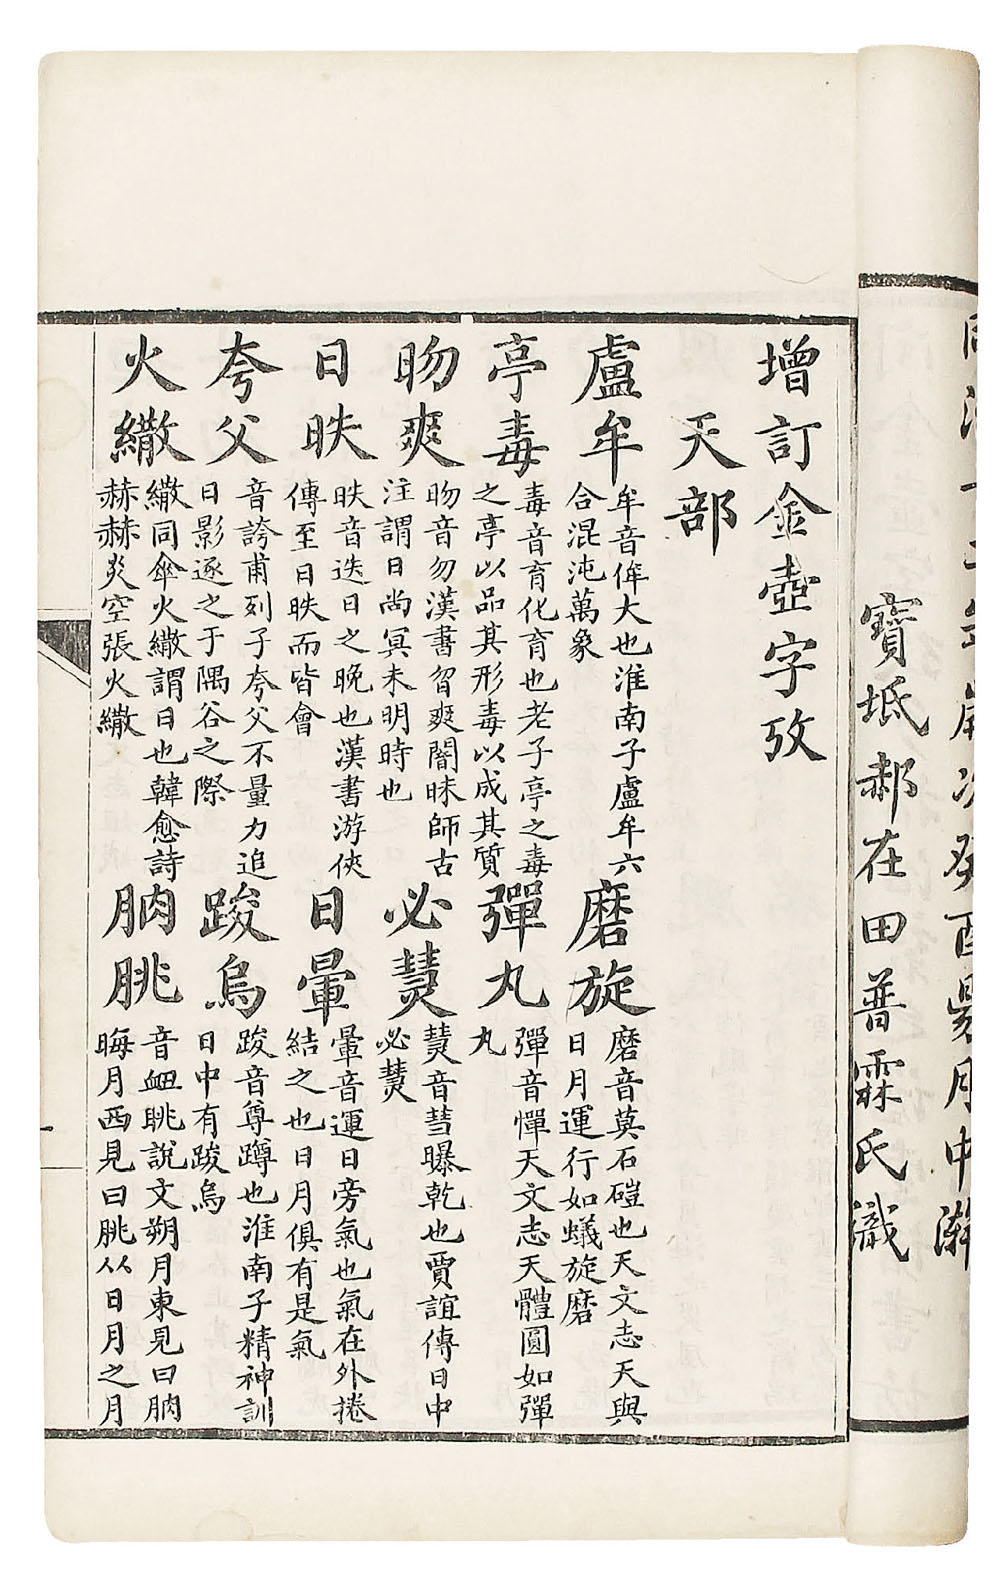 寶坻郝在田普霖氏識
增訂金壺字攷
天部
盧牟
牟音侔大也淮南子盧牟六
合混沌萬象
磨旋
磨音莫石磑也天文志天與
日月運行如蟻旋磨
亭毒
毒音育化育也老子亭之毒
之亭以品其形毒以成其質
彈丸
彈音憚天文志天體圓如彈
丸
昒爽
昒音勿漢書昒爽闇昧師古
注謂日尚冥未明時也
必熭
熭音彗曝乾也賈誼傳日中
必熭
日昳
昳音迭日之晚也漢書游俠
傳至日昳而皆會
日暈
暈音運日旁氣也氣在外捲
結之也日月俱有是氣
夸父
音誇甫列子夸父不量力追
日影逐之于隅谷之際
踆烏
踆音尊蹲也淮南子精神訓
日中有踆烏
火繖
繖同傘火繖謂日也韓愈詩
赫赫炎空張火繖
朒朓
音衄眺說文朔月東見曰朒
晦月西見曰朓从日月之月